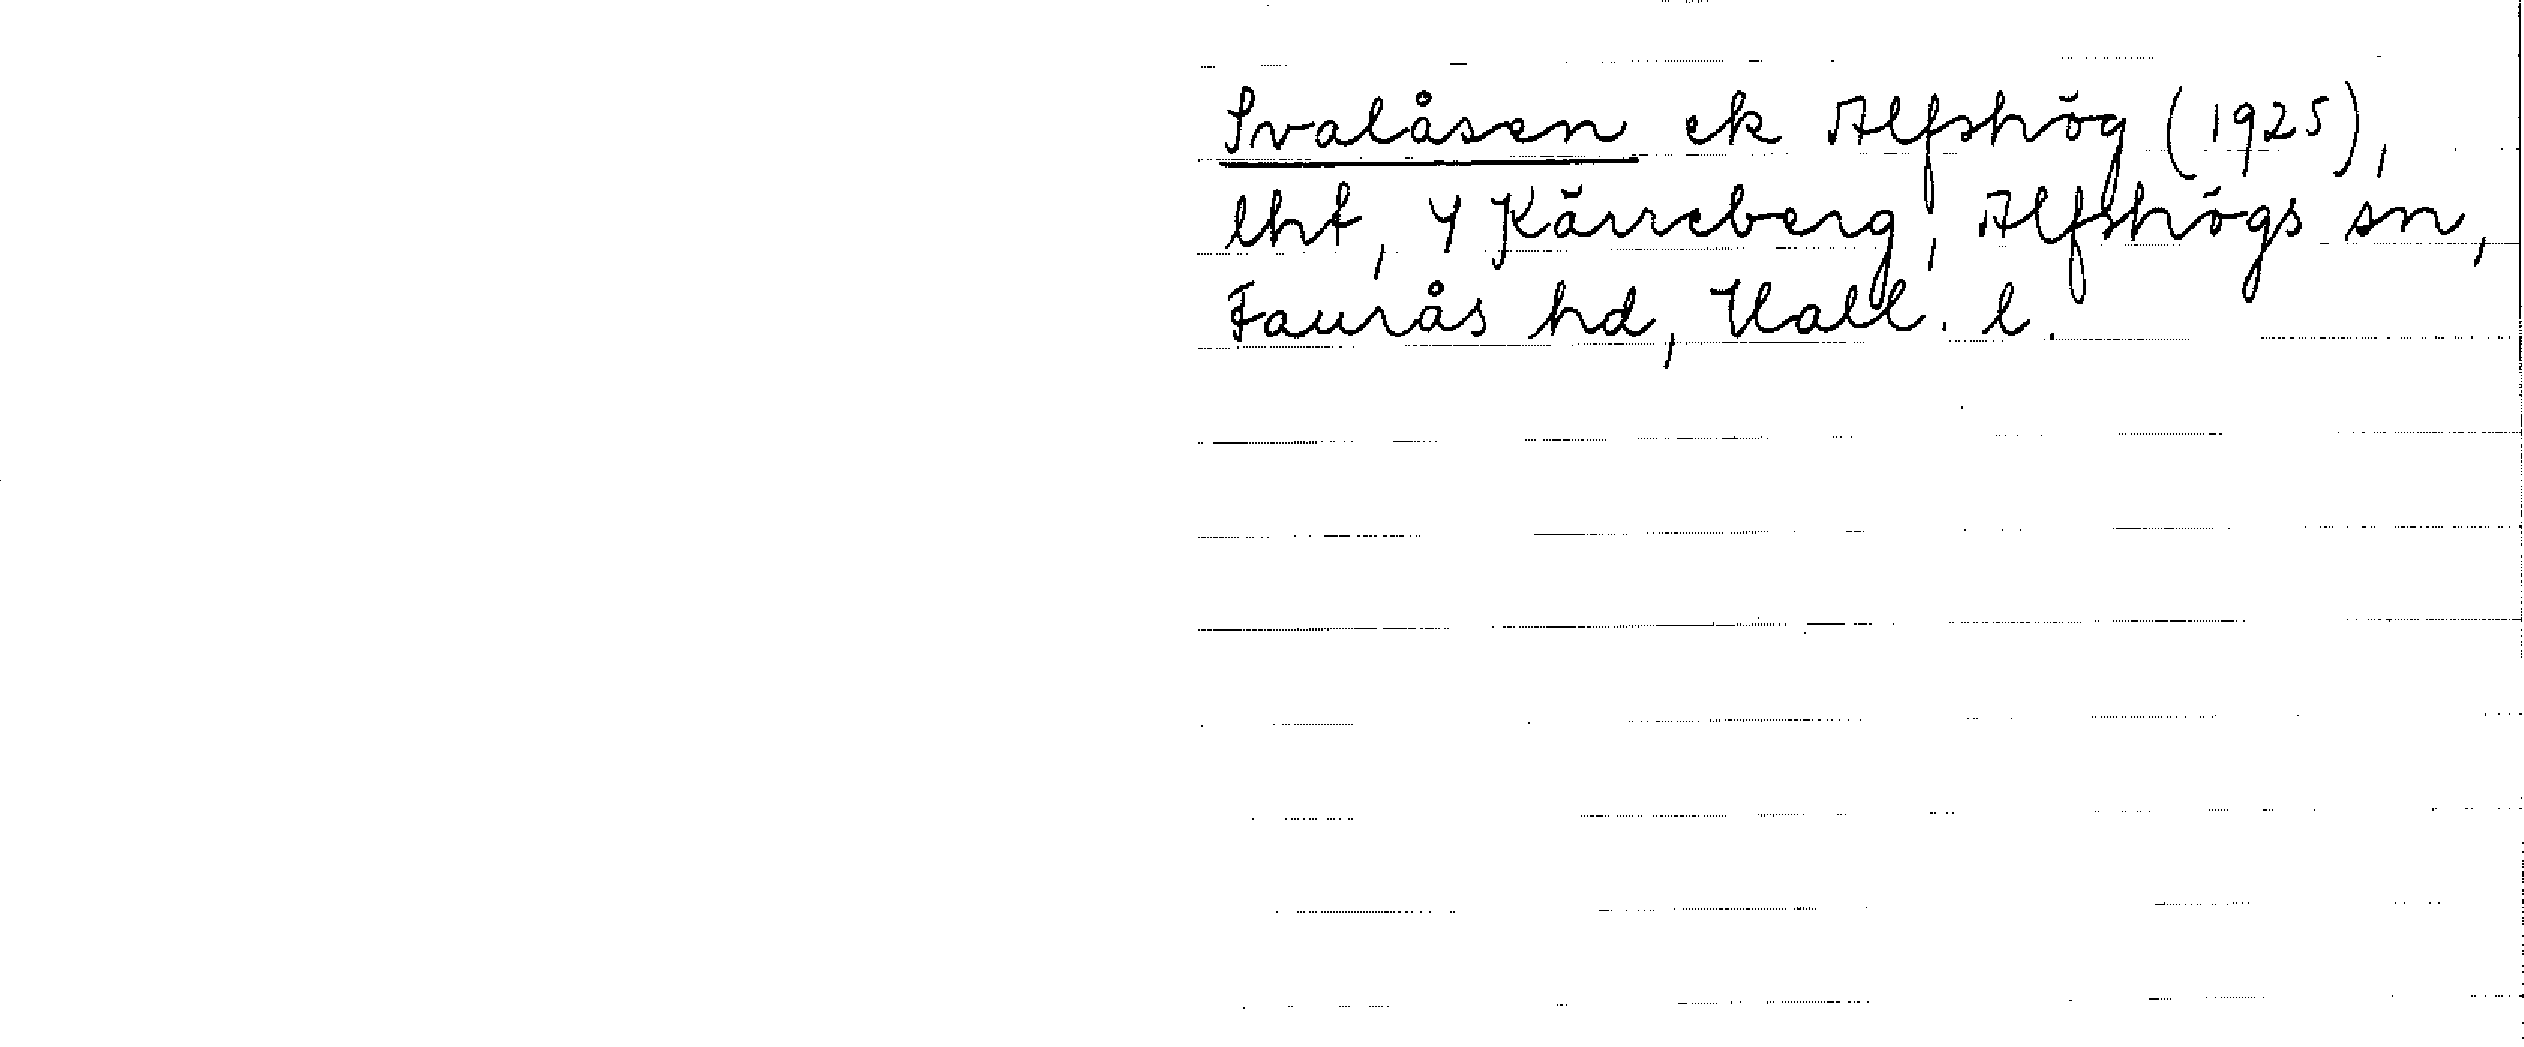 Svalåsen ek Alfshög (1925),
lht, 4 Kärreberg, Alfshögs sn,
Faurås hd, Hall. l.